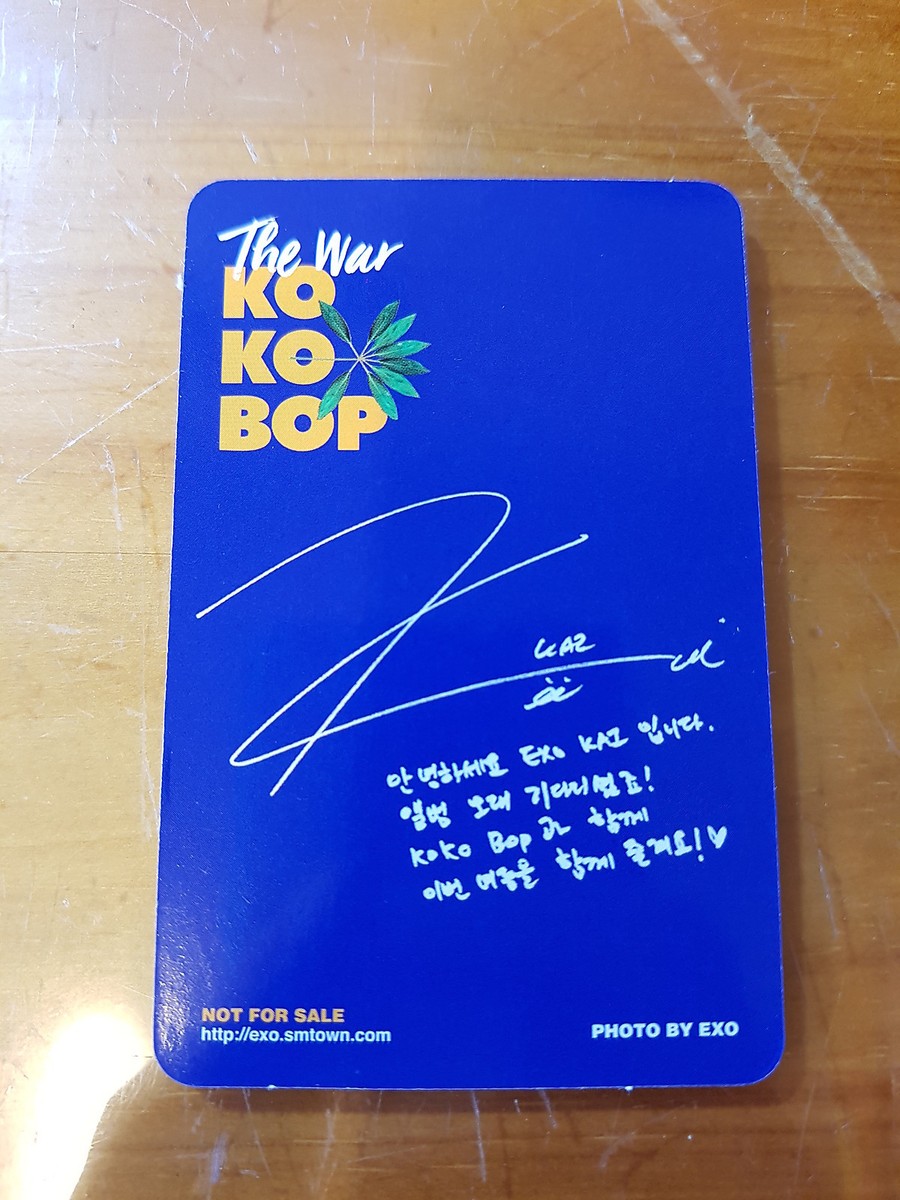 The War
KO
KO
BOP
KAI
안녕하세요 EXO KAI 입니다.
앨범 오래 기다리셨죠!
KoKo Bop 과 함께
이번 여름을 함께 즐겨요!♡
NOT FOR SALE
http://exo.smtown.com
PHOTO BY EXO